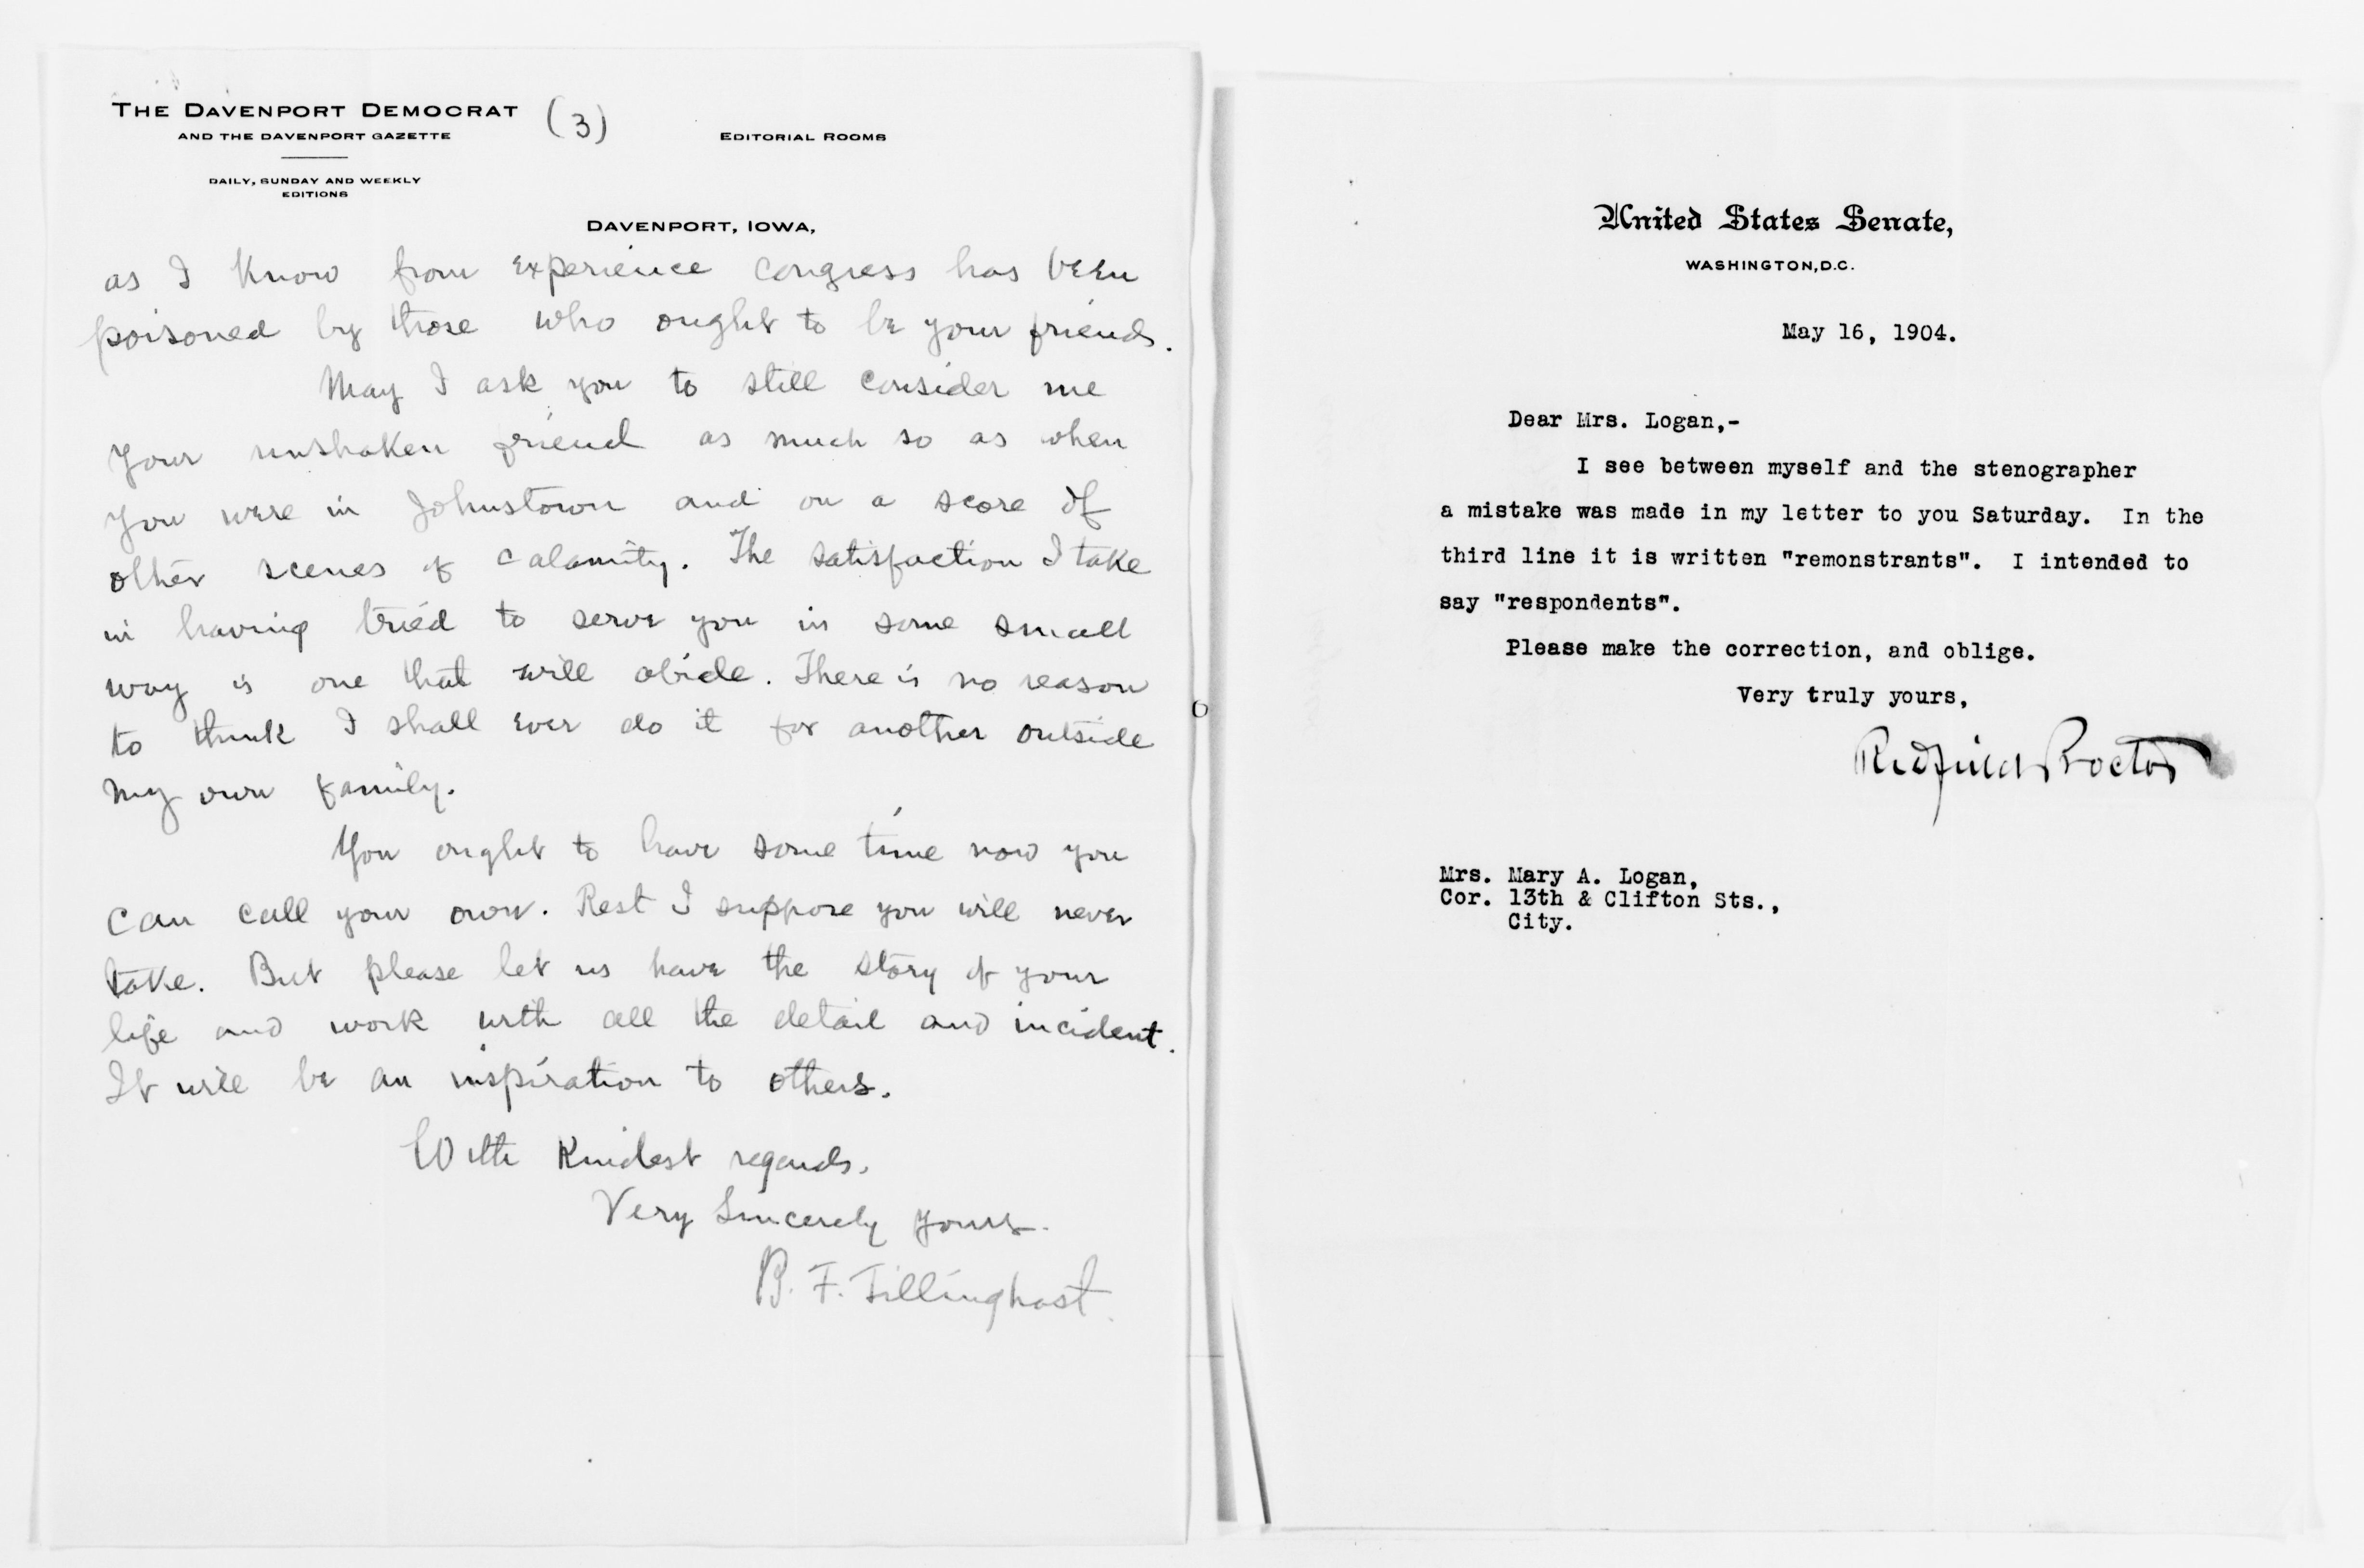 THE DAVENPORT DEMOCRAT (3)
AND THE DAVENPORT GAZETTE
EDITORIAL ROOMS
DAILY, SUNDAY AND WEEKLY
EDITIONS
DAVENPORT, IOWA,
as I know from experience congress has been
poisoned by those who ought to be your friends.
May I ask you to still consider me
your unshaken friend as much so as when
you were in Johnstown and on a score of
other scenes of calamity. The satisfaction I take
in having tried to serve you in some small
way is one that will abide. There is no reason
to think I shall ever do it for another outside
my own family.
You ought to have some time now you
can call your own. Rest I suppose you will never
take. But please let us have the story of your
life and work with all the detail and incident.
It will be an inspiration to others.
With kindest regards.
Very Sincerely yours.
B. F. Tillinghast.
United States Senate,
WASHINGTON, D.C.
May 16, 1904.
Dear Mrs. Logan,-
I see between myself and the stenographer
a mistake was made in my letter to you Saturday. In the
third line it is written "remonstrants". I intended to
say "respondents".
Please make the correction, and oblige.
Very truly yours,
Redfield Proctor
Mrs. Mary A. Logan,
Cor. 13th & Clifton Sts.,
City.